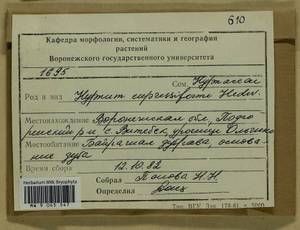 610
Кафедра морфологии, систематики и географии
растений
Воронежского государственного университета
1695
Сем. Hypnaceae
Род и вид Hypnum cupressiforme Hedw.
Местонахождение Воронежская обл., Подго
ренский р-н, с. Витебск, урочище
Местообитание Байрачная дубрава, основа
ние дуба
Время сбора 12.10.82
Собрал Попова Н.Н.
Определил
Herbarium MW, Bryophyta
Тип. ВГУ Зак.